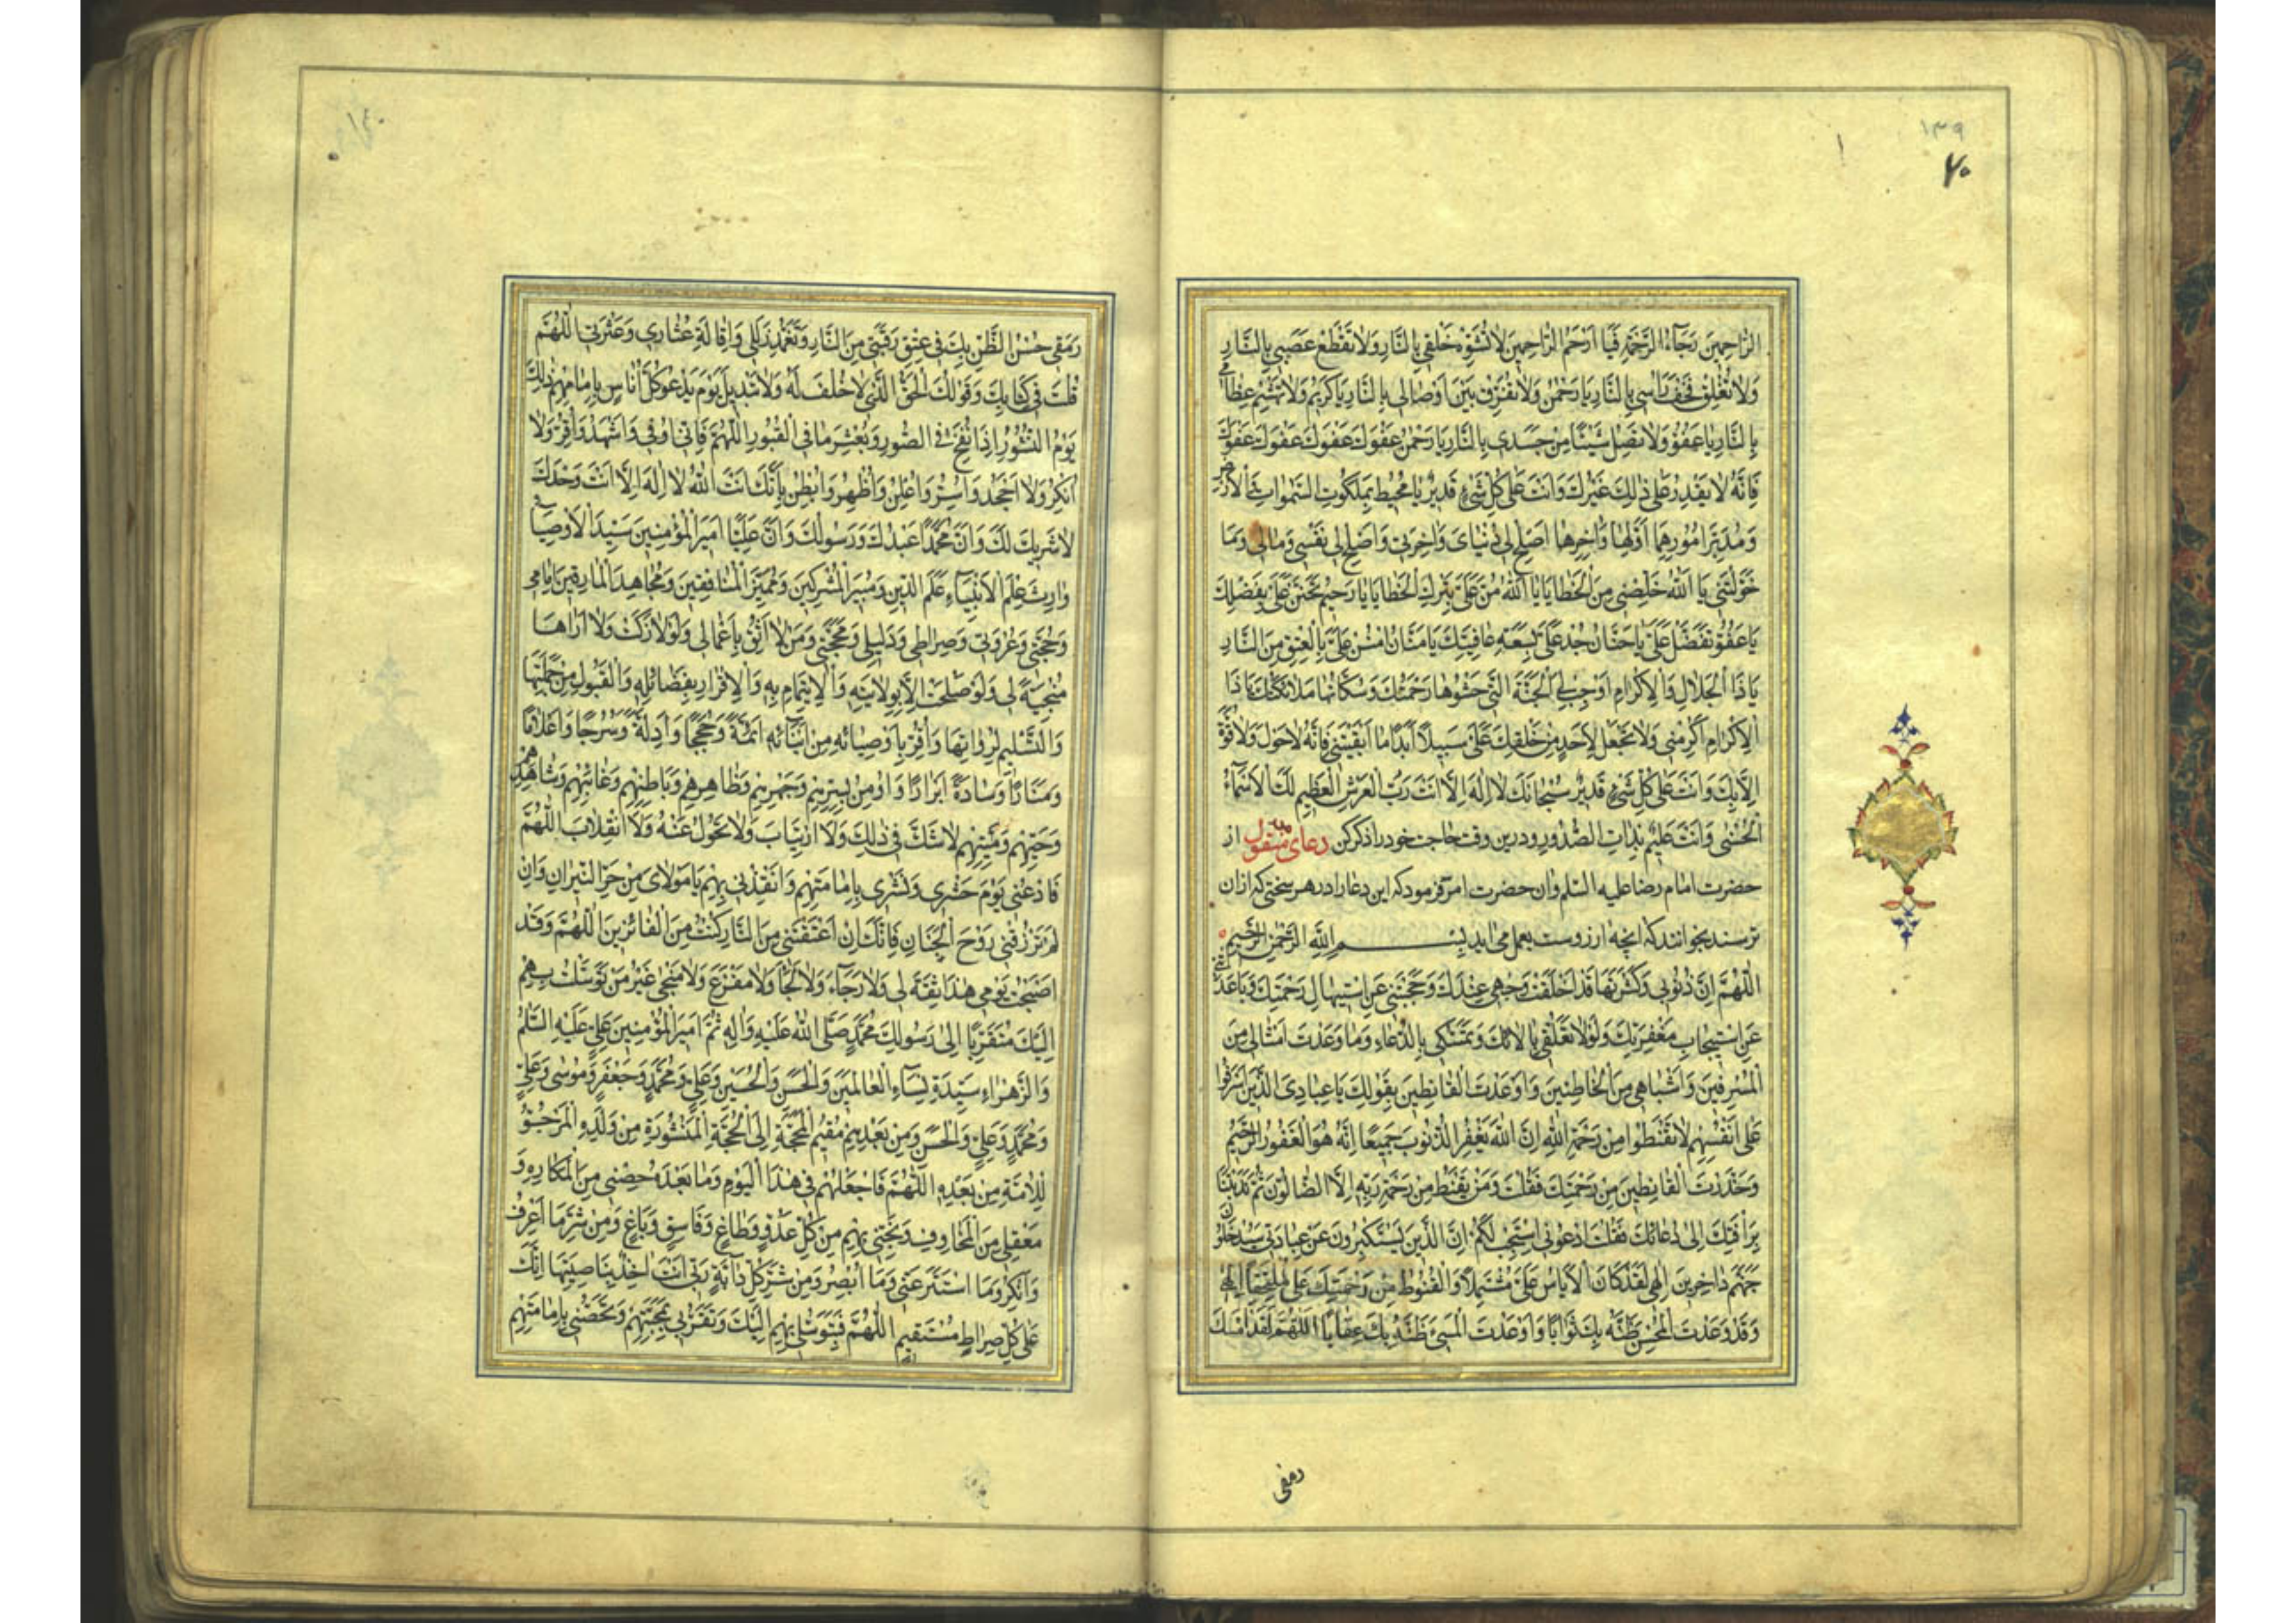 ١٣٩
٧٠
الرَّاحِمِينَ رَجَاءَ الرَّحْمَةِ فَيَا اَرْحَمَ الرَّاحِمِينَ لَا تُشَوِّهْ خَلْقِي بِالنَّارِ وَلَا تَقْطَعْ عَصَبِي بِالنَّارِ
وَلَا تُفَلِّقْ قِحْفَ رَأْسِي بِالنَّارِ يَا رَحْمٰنُ وَلَا تُفَرِّقْ بَيْنَ اَوْصَالِي بِالنَّارِ يَا كَرِيمُ وَلَا تَهْشِمْ عِظَامِي
بِالنَّارِ يَا عَفُوُّ وَلَا تُصِلْ شَيْئًا مِنْ جَسَدِي بِالنَّارِ يَا رَحْمٰنُ عَفْوَكَ عَفْوَكَ عَفْوَكَ عَفْوَكَ
فَاِنَّهُ لَا يَقْدِرُ عَلَى ذٰلِكَ غَيْرُكَ وَاَنْتَ عَلَى كُلِّ شَيْءٍ قَدِيرٌ يَا مُحِيطُ بِمَلَكُوتِ السَّمٰوَاتِ وَالْاَرْضِ
وَمُدَبِّرَ اُمُورِهِمَا اَوَّلِهَا وَاٰخِرِهَا اَصْلِحْ لِي دُنْيَايَ وَاٰخِرَتِي وَاَصْلِحْ لِي نَفْسِي وَمَالِي وَمَا
خَوَّلْتَنِي يَا اَللّٰهُ خَلِّصْنِي مِنَ الْخَطَايَا يَا اَللّٰهُ مُنَّ عَلَيَّ بِتَرْكِ الْخَطَايَا يَا رَحِيمُ تَحَنَّنْ عَلَيَّ بِفَضْلِكَ
يَا عَفُوُّ تَفَضَّلْ عَلَيَّ يَا حَنَّانُ جُدْ عَلَيَّ بِسَعَةِ عَافِيَتِكَ يَا مَنَّانُ امْنُنْ عَلَيَّ بِالْعِتْقِ مِنَ النَّارِ
يَا ذَا الْجَلَالِ وَالْاِكْرَامِ اَوْجِبْ لِيَ الْجَنَّةَ الَّتِي حَشْوُهَا رَحْمَتُكَ وَسُكَّانُهَا مَلَائِكَتُكَ يَا ذَا
الْاِكْرَامِ اَكْرِمْنِي وَلَا تَجْعَلْ لِاَحَدٍ مِنْ خَلْقِكَ عَلَيَّ سَبِيلًا اَبَدًا مَا اَبْقَيْتَنِي فَاِنَّهُ لَا حَوْلَ وَلَا قُوَّةَ
اِلَّا بِكَ وَاَنْتَ عَلَى كُلِّ شَيْءٍ قَدِيرٌ سُبْحَانَكَ لَا اِلٰهَ اِلَّا اَنْتَ رَبُّ الْعَرْشِ الْعَظِيمِ لَكَ الْاَسْمَاءُ
الْحُسْنَى وَاَنْتَ عَلِيمٌ بِذَاتِ الصُّدُورِ و درین وقت حاجت خود را ذکر کن دعای منقول از
حضرت امام رضا علیه السلم و ان حضرت امر فرمود که این دعا را در هر سختی که از ان
ترسند بخوانند که انچه ارزوست بعمل می اید بِسْمِ اللّٰهِ الرَّحْمٰنِ الرَّحِيمِ
اَللّٰهُمَّ اِنَّ ذُنُوبِي وَكَثْرَتَهَا قَدْ اَخْلَقَتْ وَجْهِي عِنْدَكَ وَحَجَبَتْنِي عَنِ اسْتِيهَالِ رَحْمَتِكَ وَبَاعَدَتْنِي
عَنِ اسْتِيجَابِ مَغْفِرَتِكَ وَلَوْلَا تَعَلُّقِي بِاٰلَائِكَ وَتَمَسُّكِي بِالدُّعَاءِ وَمَا وَعَدْتَ اَمْثَالِي مِنَ
الْمُسْرِفِينَ وَاَشْبَاهِي مِنَ الْخَاطِئِينَ وَاَوْعَدْتَ الْقَانِطِينَ بِقَوْلِكَ يَا عِبَادِيَ الَّذِينَ اَسْرَفُوا
عَلَى اَنْفُسِهِمْ لَا تَقْنَطُوا مِنْ رَحْمَةِ اللّٰهِ اِنَّ اللّٰهَ يَغْفِرُ الذُّنُوبَ جَمِيعًا اِنَّهُ هُوَ الْغَفُورُ الرَّحِيمُ
وَحَذَّرْتَ الْقَانِطِينَ مِنْ رَحْمَتِكَ فَقُلْتَ وَمَنْ يَقْنَطُ مِنْ رَحْمَةِ رَبِّهِ اِلَّا الضَّالُّونَ ثُمَّ نَدَبْتَنَا
بِرَأْفَتِكَ اِلَى دُعَائِكَ فَقُلْتَ ادْعُونِي اَسْتَجِبْ لَكُمْ اِنَّ الَّذِينَ يَسْتَكْبِرُونَ عَنْ عِبَادَتِي سَيَدْخُلُونَ
جَهَنَّمَ دَاخِرِينَ اِلٰهِي لَقَدْ كَانَ الْاِيَاسُ عَلَيَّ مُشْتَمِلًا وَالْقُنُوطُ مِنْ رَحْمَتِكَ عَلَيَّ مُلْتَحِفًا اِلٰهِي
وَقَدْ وَعَدْتَ الْمُحْسِنَ ظَنَّهُ بِكَ ثَوَابًا وَاَوْعَدْتَ الْمُسِيءَ ظَنَّهُ بِكَ عِقَابًا اَللّٰهُمَّ لَقَدْ اَمْسَكَ
رمقی
١٤٠
رَمَقِي حُسْنُ الظَّنِّ بِكَ فِي عِتْقِ رَقَبَتِي مِنَ النَّارِ وَتَغَمُّدِ زَلَلِي وَاِقَالَةِ عِثَارِي وَعَثْرَتِي اَللّٰهُمَّ
قُلْتَ فِي كِتَابِكَ وَقَوْلُكَ الْحَقُّ الَّذِي لَا خُلْفَ لَهُ وَلَا تَبْدِيلَ يَوْمَ يَدْعُو كُلَّ اُنَاسٍ بِاِمَامِهِمْ ذٰلِكَ
يَوْمُ النُّشُورِ اِذَا نُفِخَ فِي الصُّورِ وَبُعْثِرَ مَا فِي الْقُبُورِ اَللّٰهُمَّ فَاِنِّي اُوفِي وَاَشْهَدُ وَاُقِرُّ وَلَا
اُنْكِرُ وَلَا اَجْحَدُ وَاُسِرُّ وَاُعْلِنُ وَاُظْهِرُ وَاُبْطِنُ بِاَنَّكَ اَنْتَ اللّٰهُ لَا اِلٰهَ اِلَّا اَنْتَ وَحْدَكَ
لَا شَرِيكَ لَكَ وَاَنَّ مُحَمَّدًا عَبْدُكَ وَرَسُولُكَ وَاَنَّ عَلِيًّا اَمِيرُ الْمُؤْمِنِينَ سَيِّدُ الْاَوْصِيَاءِ
وَارِثُ عِلْمِ الْاَنْبِيَاءِ عَلَمُ الدِّينِ وَمُبِيرُ الْمُشْرِكِينَ وَمُمَيِّزُ الْمُنَافِقِينَ وَمُجَاهِدُ الْمَارِقِينَ اِمَامِي
وَحُجَّتِي وَعُرْوَتِي وَصِرَاطِي وَدَلِيلِي وَمَحَجَّتِي وَمَنْ لَا اَثِقُ بِاَعْمَالِي وَلَوْ زَكَتْ وَلَا اَرَاهَا
مُنْجِيَةً لِي وَلَوْ صَلُحَتْ اِلَّا بِوِلَايَتِهِ وَالْاِيتِمَامِ بِهِ وَالْاِقْرَارِ بِفَضَائِلِهِ وَالْقَبُولِ مِنْ حَمَلَتِهَا
وَالتَّسْلِيمِ لِرُوَاتِهَا وَاُقِرُّ بِاَوْصِيَائِهِ مِنْ اَبْنَائِهِ اَئِمَّةً وَحُجَجًا وَاَدِلَّةً وَسُرُجًا وَاَعْلَامًا
وَمَنَارًا وَسَادَةً اَبْرَارًا وَاُومِنُ بِسِرِّهِمْ وَجَهْرِهِمْ وَظَاهِرِهِمْ وَبَاطِنِهِمْ وَغَائِبِهِمْ وَشَاهِدِهِمْ
وَحَيِّهِمْ وَمَيِّتِهِمْ لَا شَكَّ فِي ذٰلِكَ وَلَا ارْتِيَابَ وَلَا تَحَوُّلَ عَنْهُ وَلَا انْقِلَابَ اَللّٰهُمَّ
فَادْعُنِي يَوْمَ حَشْرِي وَنَشْرِي بِاِمَامَتِهِمْ وَاَنْقِذْنِي بِهِمْ يَا مَوْلَايَ مِنْ حَرِّ النِّيرَانِ وَاِنْ
لَمْ تَرْزُقْنِي رَوْحَ الْجِنَانِ فَاِنَّكَ اِنْ اَعْتَقْتَنِي مِنَ النَّارِ كُنْتُ مِنَ الْفَائِزِينَ اَللّٰهُمَّ وَقَدْ
اَصْبَحْتُ يَوْمِي هٰذَا لَا ثِقَةَ لِي وَلَا رَجَاءَ وَلَا لَجَأَ وَلَا مَفْزَعَ وَلَا مَنْجَى غَيْرُ مَنْ تَوَسَّلْتُ بِهِمْ
اِلَيْكَ مُتَقَرِّبًا اِلَى رَسُولِكَ مُحَمَّدٍ صَلَّى اللّٰهُ عَلَيْهِ وَاٰلِهِ ثُمَّ اَمِيرِ الْمُؤْمِنِينَ عَلِيٍّ عَلَيْهِ السَّلٰمُ
وَالزَّهْرَاءِ سَيِّدَةِ نِسَاءِ الْعَالَمِينَ وَالْحَسَنِ وَالْحُسَيْنِ وَعَلِيٍّ وَمُحَمَّدٍ وَجَعْفَرٍ وَمُوسَى وَعَلِيٍّ
وَمُحَمَّدٍ وَعَلِيٍّ وَالْحَسَنِ وَمَنْ بَعْدَهُمْ مُقِيمُ الْمَحَجَّةِ اِلَى الْحُجَّةِ الْمَنْشُورَةِ مِنْ وَلَدِهِ الْمَرْجُوُّ
لِلْاُمَّةِ مِنْ بَعْدِهِ اَللّٰهُمَّ فَاجْعَلْهُمْ فِي هٰذَا الْيَوْمِ وَمَا بَعْدَهُ حِصْنِي مِنَ الْمَكَارِهِ وَ
مَعْقِلِي مِنَ الْمَخَاوِفِ وَنَجِّنِي بِهِمْ مِنْ كُلِّ عَدُوٍّ وَطَاغٍ وَفَاسِقٍ وَبَاغٍ وَمِنْ شَرِّ مَا اَعْرِفُ
وَاُنْكِرُ وَمَا اسْتَتَرَ عَنِّي وَمَا اُبْصِرُ وَمِنْ شَرِّ كُلِّ دَابَّةٍ رَبِّي اَنْتَ اٰخِذٌ بِنَاصِيَتِهَا اِنَّكَ
عَلَى كُلِّ صِرَاطٍ مُسْتَقِيمٍ اَللّٰهُمَّ فَبِتَوَسُّلِي بِهِمْ اِلَيْكَ وَتَقَرُّبِي بِمَحَبَّتِهِمْ وَتَحَصُّنِي بِاِمَامَتِهِمْ